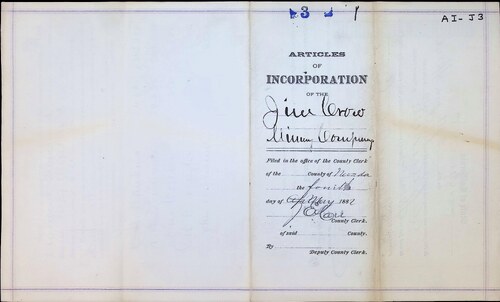 3
AI-J3
ARTICLES
OF
INCORPORATION
OF THE
Jim Crow
Mining Company
Filed in the office of the County Clerk
of the County of Nevada
the fourth
day of 1882
County Clerk.
of said County.
By
Deputy County Clerk.